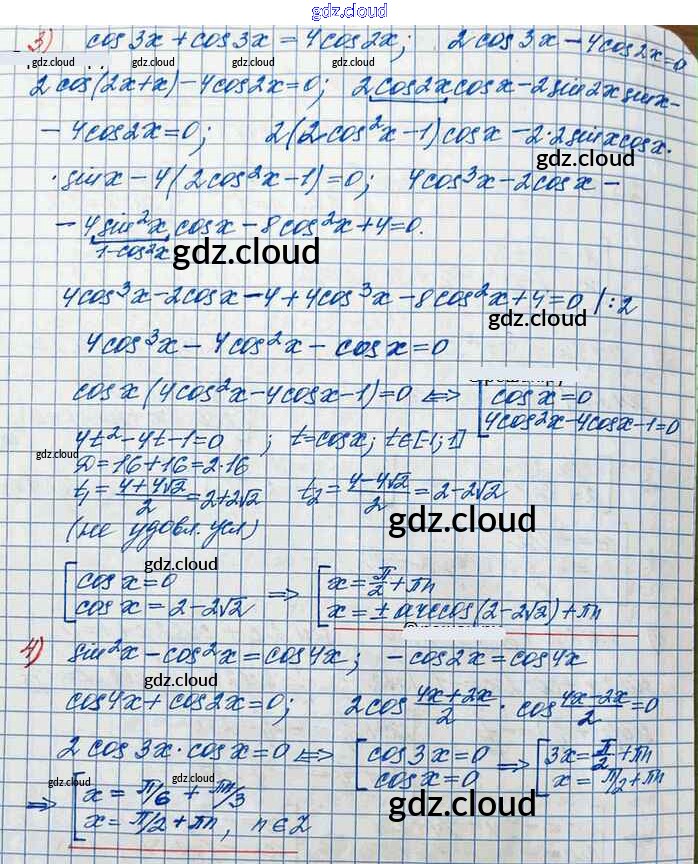 gdz.cloud
3) cos3x + cos3x = 4cos2x; 2cos3x − 4cos2x=0
gdz.cloud gdz.cloud gdz.cloud
2cos(2x+x) − 4cos2x=0; 2cos2xcosx − 2sin2xsinx −
− 4cos2x=0; 2(2cos²x−1)cosx − 2·2sinxcosx·
gdz.cloud
·sinx − 4(2cos²x−1)=0; 4cos³x − 2cosx −
− 4sin²x cosx − 8cos²x+4=0.
1−cos²x
gdz.cloud
4cos³x−2cosx−4+4cos³x−8cos²x+4=0 /:2
gdz.cloud
4cos³x − 4cos²x − cosx=0
cosx(4cos²x−4cosx−1)=0 <=> [cosx=0
4cos2x−4cosx−1=0
4t²−4t−1=0 ; t=cosx; t∈[-1;1]
gdz.cloud
D=16+16=2·16
t₁=(4+4√2)/2=2+2√2 t₂=(4−4√2)/2=2−2√2
(не удовл. усл)
gdz.cloud
gdz.cloud
[cosx=0 => [x=π/2+πn
cosx=2−2√2 x=±arccos(2−2√2)+πn
4) sin²x − cos²x=cos4x; −cos2x=cos4x
gdz.cloud
cos4x+cos2x=0; 2cos (4x+2x)/2 · cos (4x−2x)/2=0
2cos3x·cosx=0 <=> [cos3x=0 => [3x=π/2+πn
cosx=0 x=π/2+πn
gdz.cloud gdz.cloud
=> [x=π/6+πn/3
gdz.cloud
x=π/2+πn, n∈Z